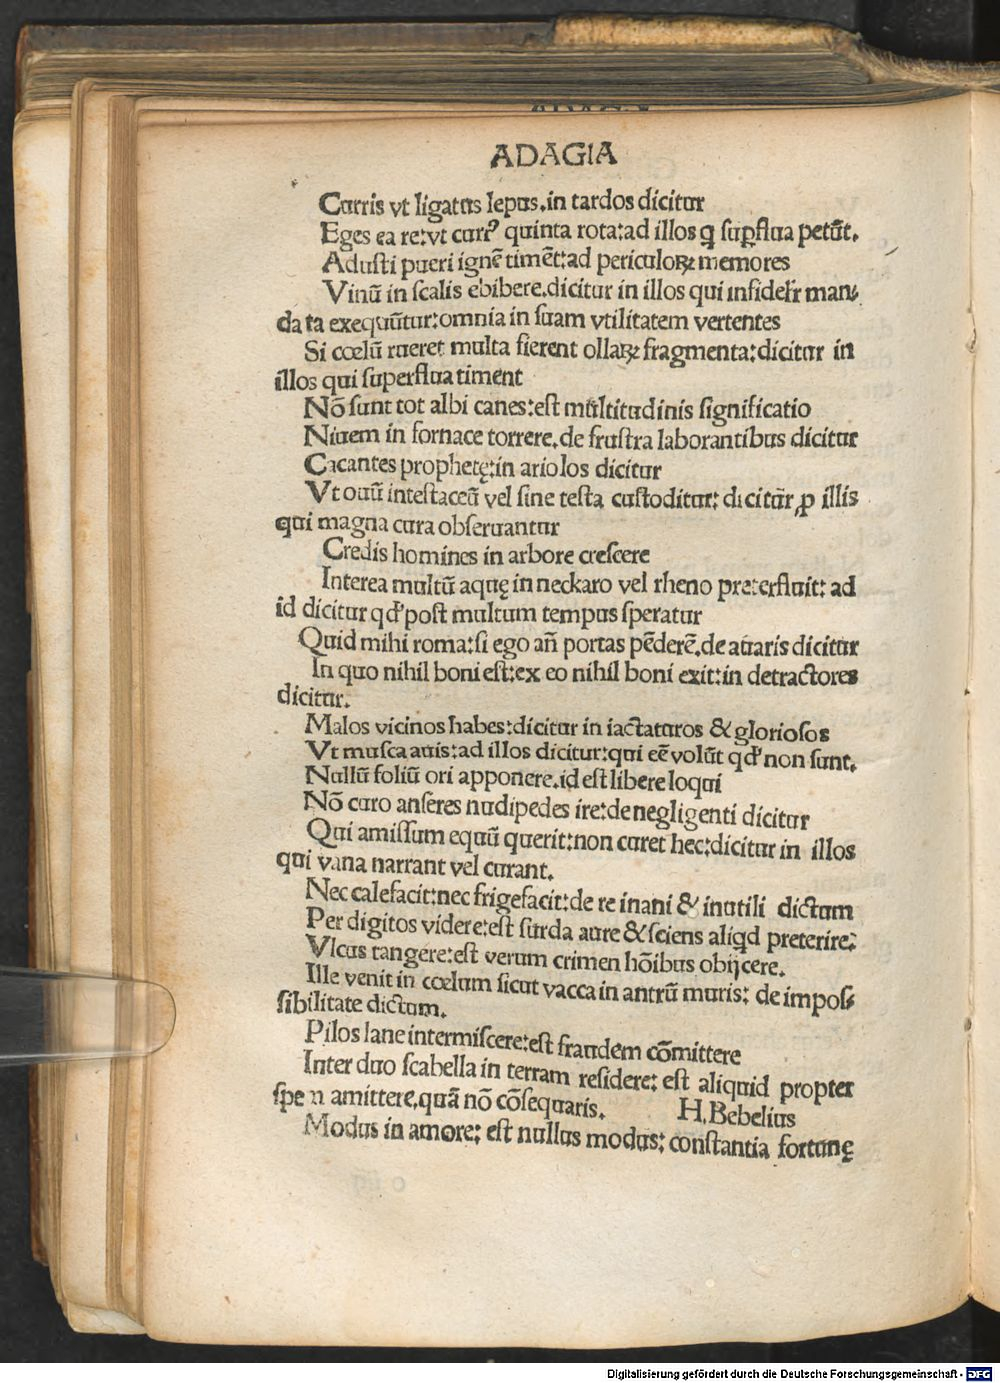 ADAGIA
Curris vt ligatus lepus.in tardos dicitur
Eges ea re:vt currꝰ quinta rota:ad illos ꝗ suꝑflua petūt.
Adusti pueri ignē timēt:ad periculoꝝ memores
Vinū in scalis ebibere.dicitur in illos qui infidelr man⸗
data exequūtur:omnia in suam vtilitatem vertentes
Si cœlū rueret multa fierent ollaꝝ fragmenta:dicitur in
illos qui superflua timent
Nō sunt tot albi canes:est mūltitudinis significatio
Niuem in fornace torrere.de frustra laborantibus dicitur
Cacantes prophetę:in ariolos dicitur
Vt ouū intestaceū vel sine testa custoditur: dicitur ꝓ illis
qui magna cura obseruantur
Credis homines in arbore crescere
Interea multū aquę in neckaro vel rheno preterfluit: ad
id dicitur qd' post multum tempus speratur
Quid mihi roma:si ego añ portas pēderē.de auaris dicitur
In quo nihil boni est:ex eo nihil boni exit:in detractores
dicitur.
Malos vicinos habes:dicitur in iactaturos & gloriosos
Vt musca auis:ad illos dicitur:qui eē volūt qd' non sunt.
Nullū foliū ori apponere.id est libere loqui
Nō curo anseres nudipedes ire:de negligenti dicitur
Qui amissum equū querit:non curet hec:dicitur in illos
qui vana narrant vel curant.
Nec calefacit:nec frigefacit:de re inani & inutili dictum
Per digitos videre:est surda aure & sciens aliqd preterire:
Vlcus tangere:est verum crimen hōibus obijcere.
Ille venit in cœlum sicut vacca in antrū muris: de impos⸗
sibilitate dictum.
Pilos lane intermiscere:est fraudem cōmittere
Inter duo scabella in terram residere: est aliquid propter
spem amittere.quā nō cōsequaris. H.Bebelius
Modus in amore: est nullus modus: constantia fortunę
Digitalisierung gefördert durch die Deutsche Forschungsgemeinschaft - DFG